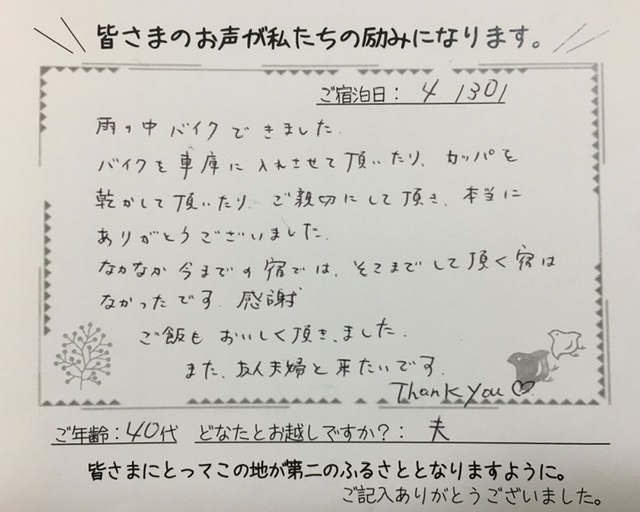 皆さまのお声が私たちの励みになります。
ご宿泊日: 4 /30/
雨の中バイクできました.
バイクを車庫に入れさせて頂いたり、カッパを
乾かして頂いたり、ご親切にして頂き、本当に
ありがとうございました.
なかなか今までの宿では、そこまでして頂く宿は
なかったです. 感謝
ご飯もおいしく頂きました.
また、友人夫婦と来たいです.
Thank you ♡
ご年齢:40代 どなたとお越しですか?: 夫
皆さまにとってこの地が第二のふるさととなりますように。
ご記入ありがとうございました。